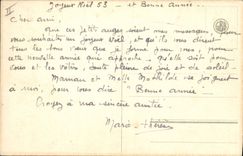 Joyeux Noël 53 - et Bonne Année -
II
Cher ami,
Que ces petits anges soient mes messagers, pour
vous souhaiter un joyeux Noël, et qu'ils vous disent
tous les bons vœux que je forme pour vous, pour
cette nouvelle année qui approche. Qu'elle soit pour
vous et les vôtres toute pleine de joie et de soleil
Maman et Melle Mathilde se joignent
à moi, pour vous dire " Bonne Année "
Croyez à ma sincère amitié.
Marie-Thérèse